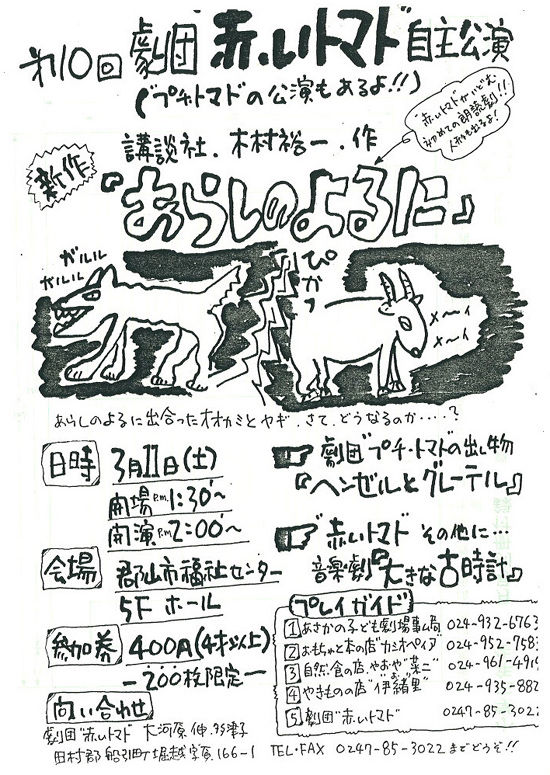 第10回 劇団 赤いトマト 自主公演
(プチ・トマトの公演もあるよ!!)
"赤いトマト"がいどむ
初めての朗読劇!!
人形も出るよ!
講談社.木村裕一.作
新作
『あらしのよるに』
ガルル
ガルルル
ぴかっ
メ〜ィ
メ〜ィ
あらしのよるに出合ったオオカミとヤギ.さて、どうなるのか・・・・?
日時 3月11日(土)
開場 P.M. 1:30〜
開演 P.M. 2:00〜
会場 郡山市福祉センター
5F ホール
参加券 400円(4才以上)
―200枚限定―
問い合わせ
劇団"赤いトマト" 大河原 伸.多津子
田村郡 船引町 堀越字 166-1 TEL・FAX 0247-85-3022 までどうぞ!!
劇団"プチ・トマト"の出し物
『ヘンゼルとグレーテル』
"赤いトマト" その他に…
音楽劇『大きな古時計』
プレイガイド
1 あさかの子ども劇場事ム局 024-932-6763
2 おもちゃと本の店"カシオペイア" 024-952-758
3 自然食の店.やおや"菜二" 024-961-491
4 やきものの店"伊緒里" 024-935-882
5 劇団"赤いトマト" 0247-85-3022